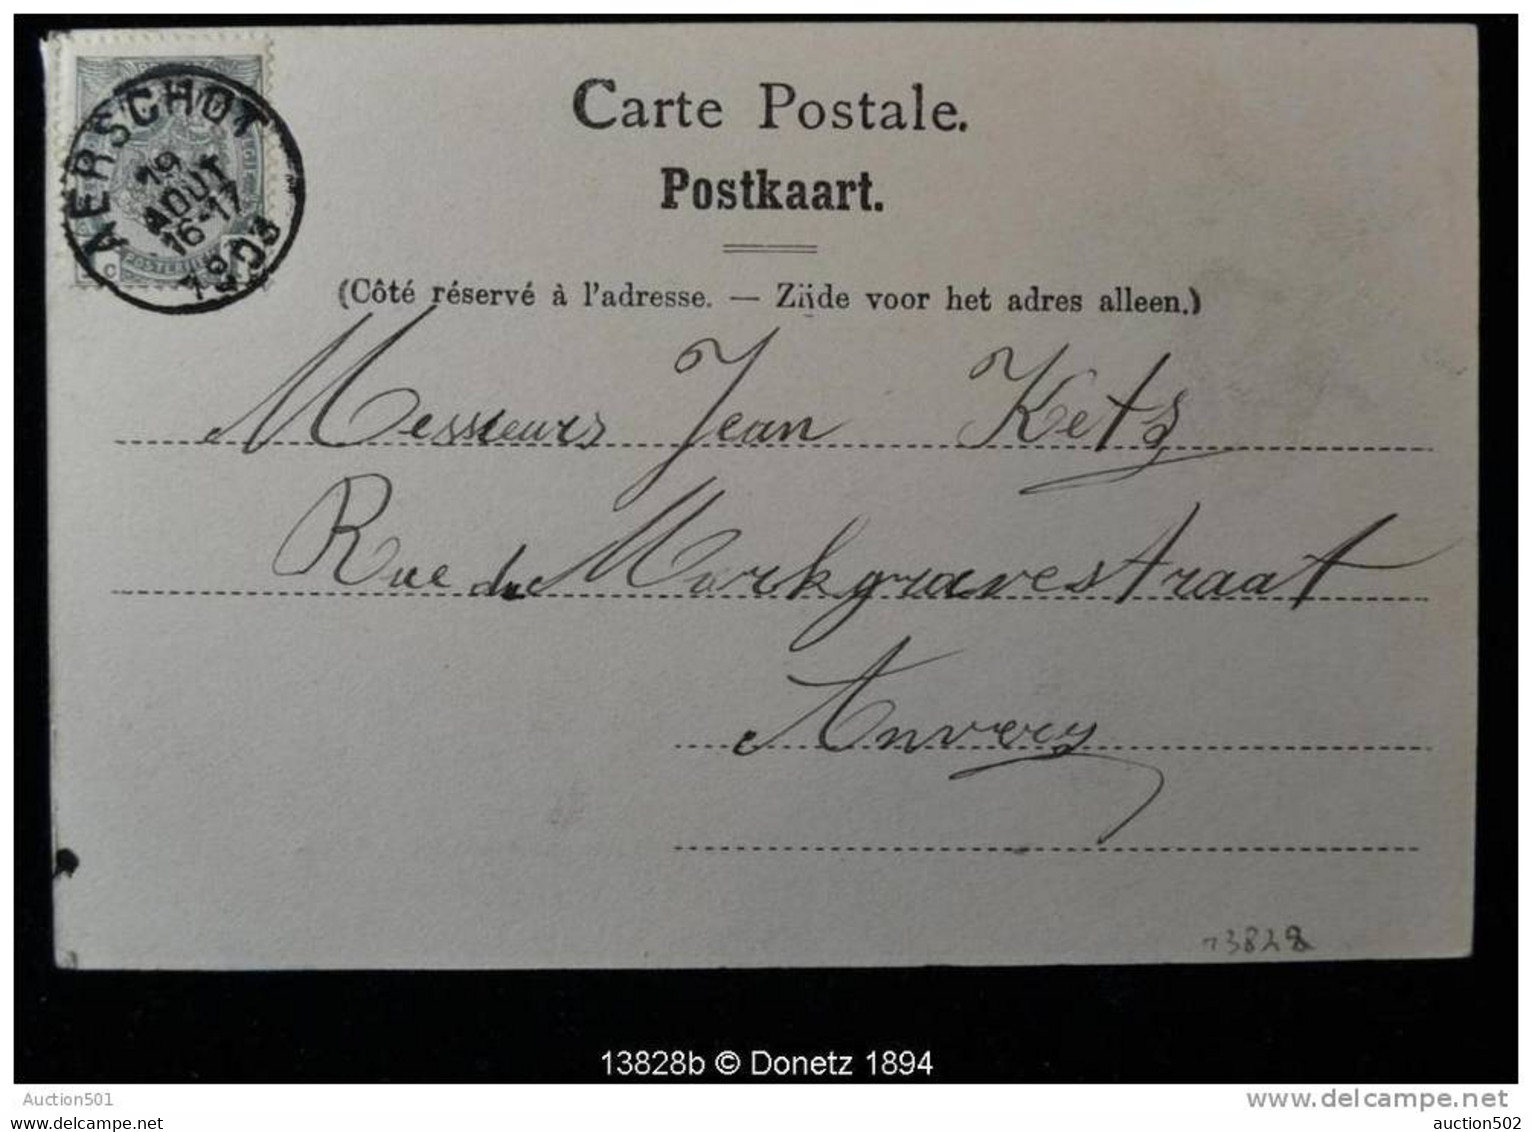 AERSCHOT
19
AOUT
16-17
1903
Carte Postale.
Postkaart.
(Côté réservé à l'adresse. — Zijde voor het adres alleen.)
Messieurs Jean Kets
Rue du Markgravestraat
Anvers
13828
13828b © Donetz 1894
Auction501
www.delcampe.net
auction502